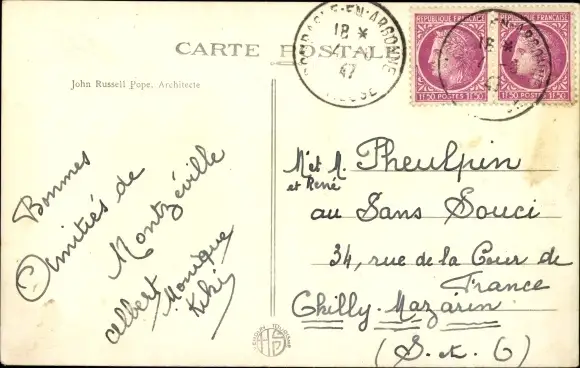 CARTE POSTALE
DOMBASLE-EN-ARGONNE
18 *
47
MEUSE
REPUBLIQUE FRANÇAISE
1F50 POSTES 1F50
REPUBLIQUE FRANÇAISE
1F50 POSTES 1F50
John Russell Pope, Architecte
Bonnes
Amitiés de
Montzéville
Albert
Monique
Kiki
Mr et M. Pheulpin
et René
au Sans Souci
34, rue de la Cour de
France
Chilly-Mazarin
(S. et O)